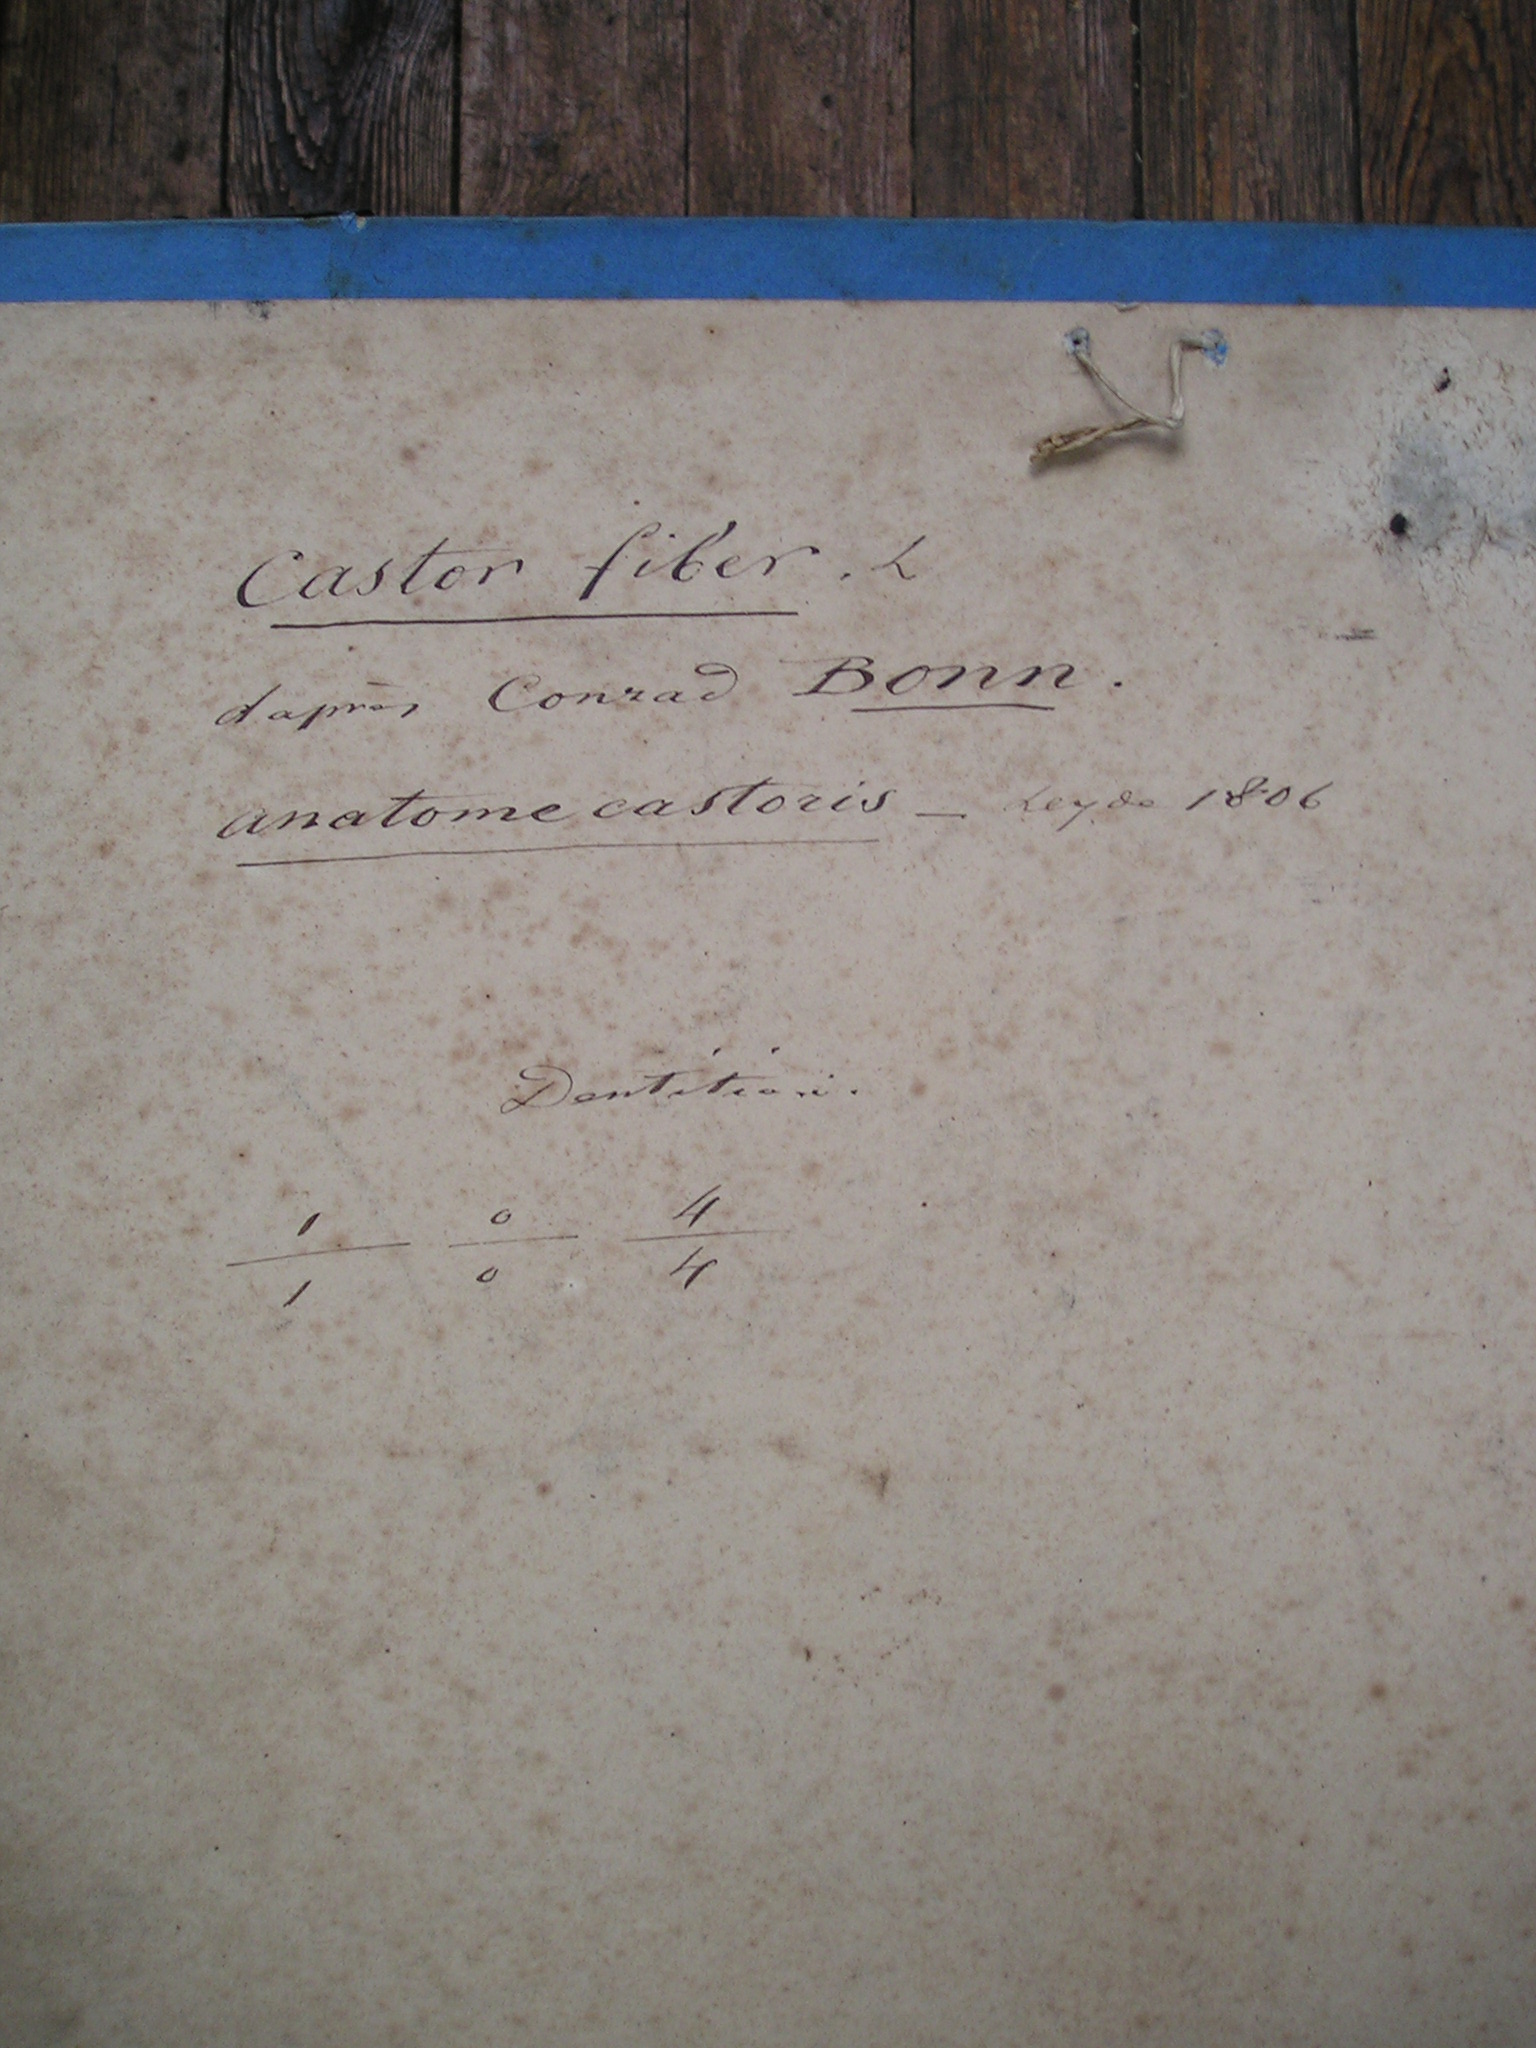 Castor fiber. L
d'après Conrad Bonn.
anatome castoris — Leyde 1806
Dentition.
1 0 4
1 0 4